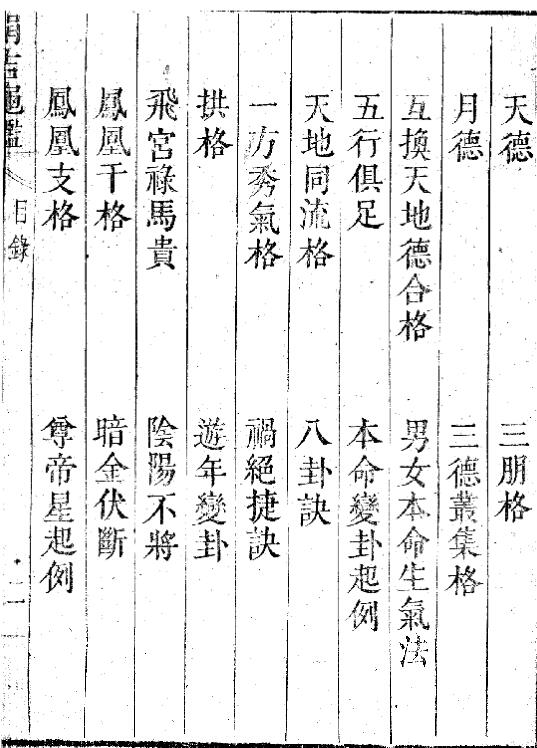 天德　三朋格
月德　三德叢集格
互換天地德合格　男女本命生氣法
五行俱足　本命變卦起例
天地同流格　八卦訣
一方秀氣格　禍絕捷訣
拱格　遊年變卦
飛宮祿馬貴　陰陽不將
鳳凰干格　暗金伏斷
鳳凰支格　尊帝星起例
吉龜鑑　目錄